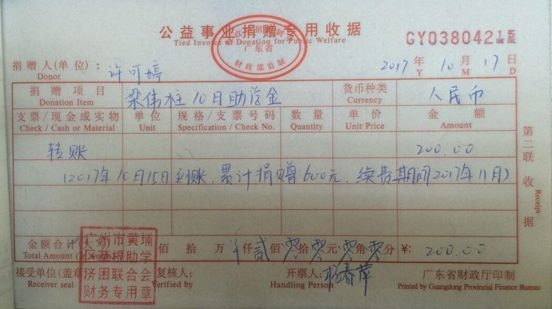 公益事业捐赠专用收据
Tied Invoice of Donation for Public Welfare
广东省
财政部监制
GY03804215
捐赠人(单位): 许可婷
Donor
2017 年 10 月 17 日
Y M D
捐赠项目 梁伟柱10月助学金 货币种类 人民币
Donation Item Currency
支票/现金或实物 单位 规格/支票号码 数量 单价 金额
Check / Cash or Material Unit Specification / Check No. Quantity Unit Price Amount
转账 200.00
(2017年10月15日到账,累计捐赠600元,续费期间2017年11月)
金额合计 佰拾万仟贰佰零拾零元零角零分 ¥: 200.00
Total Amount
接受单位(盖章) 复核人: 开票人: 杨春萍 广东省财政厅印制
Receiver seal Verified by Handling Person Printed by Guangdong Provincial Finance Bureau
广州市黄埔
区萝峰助学
济困联合会
财务专用章
第二联 收据
Receipt